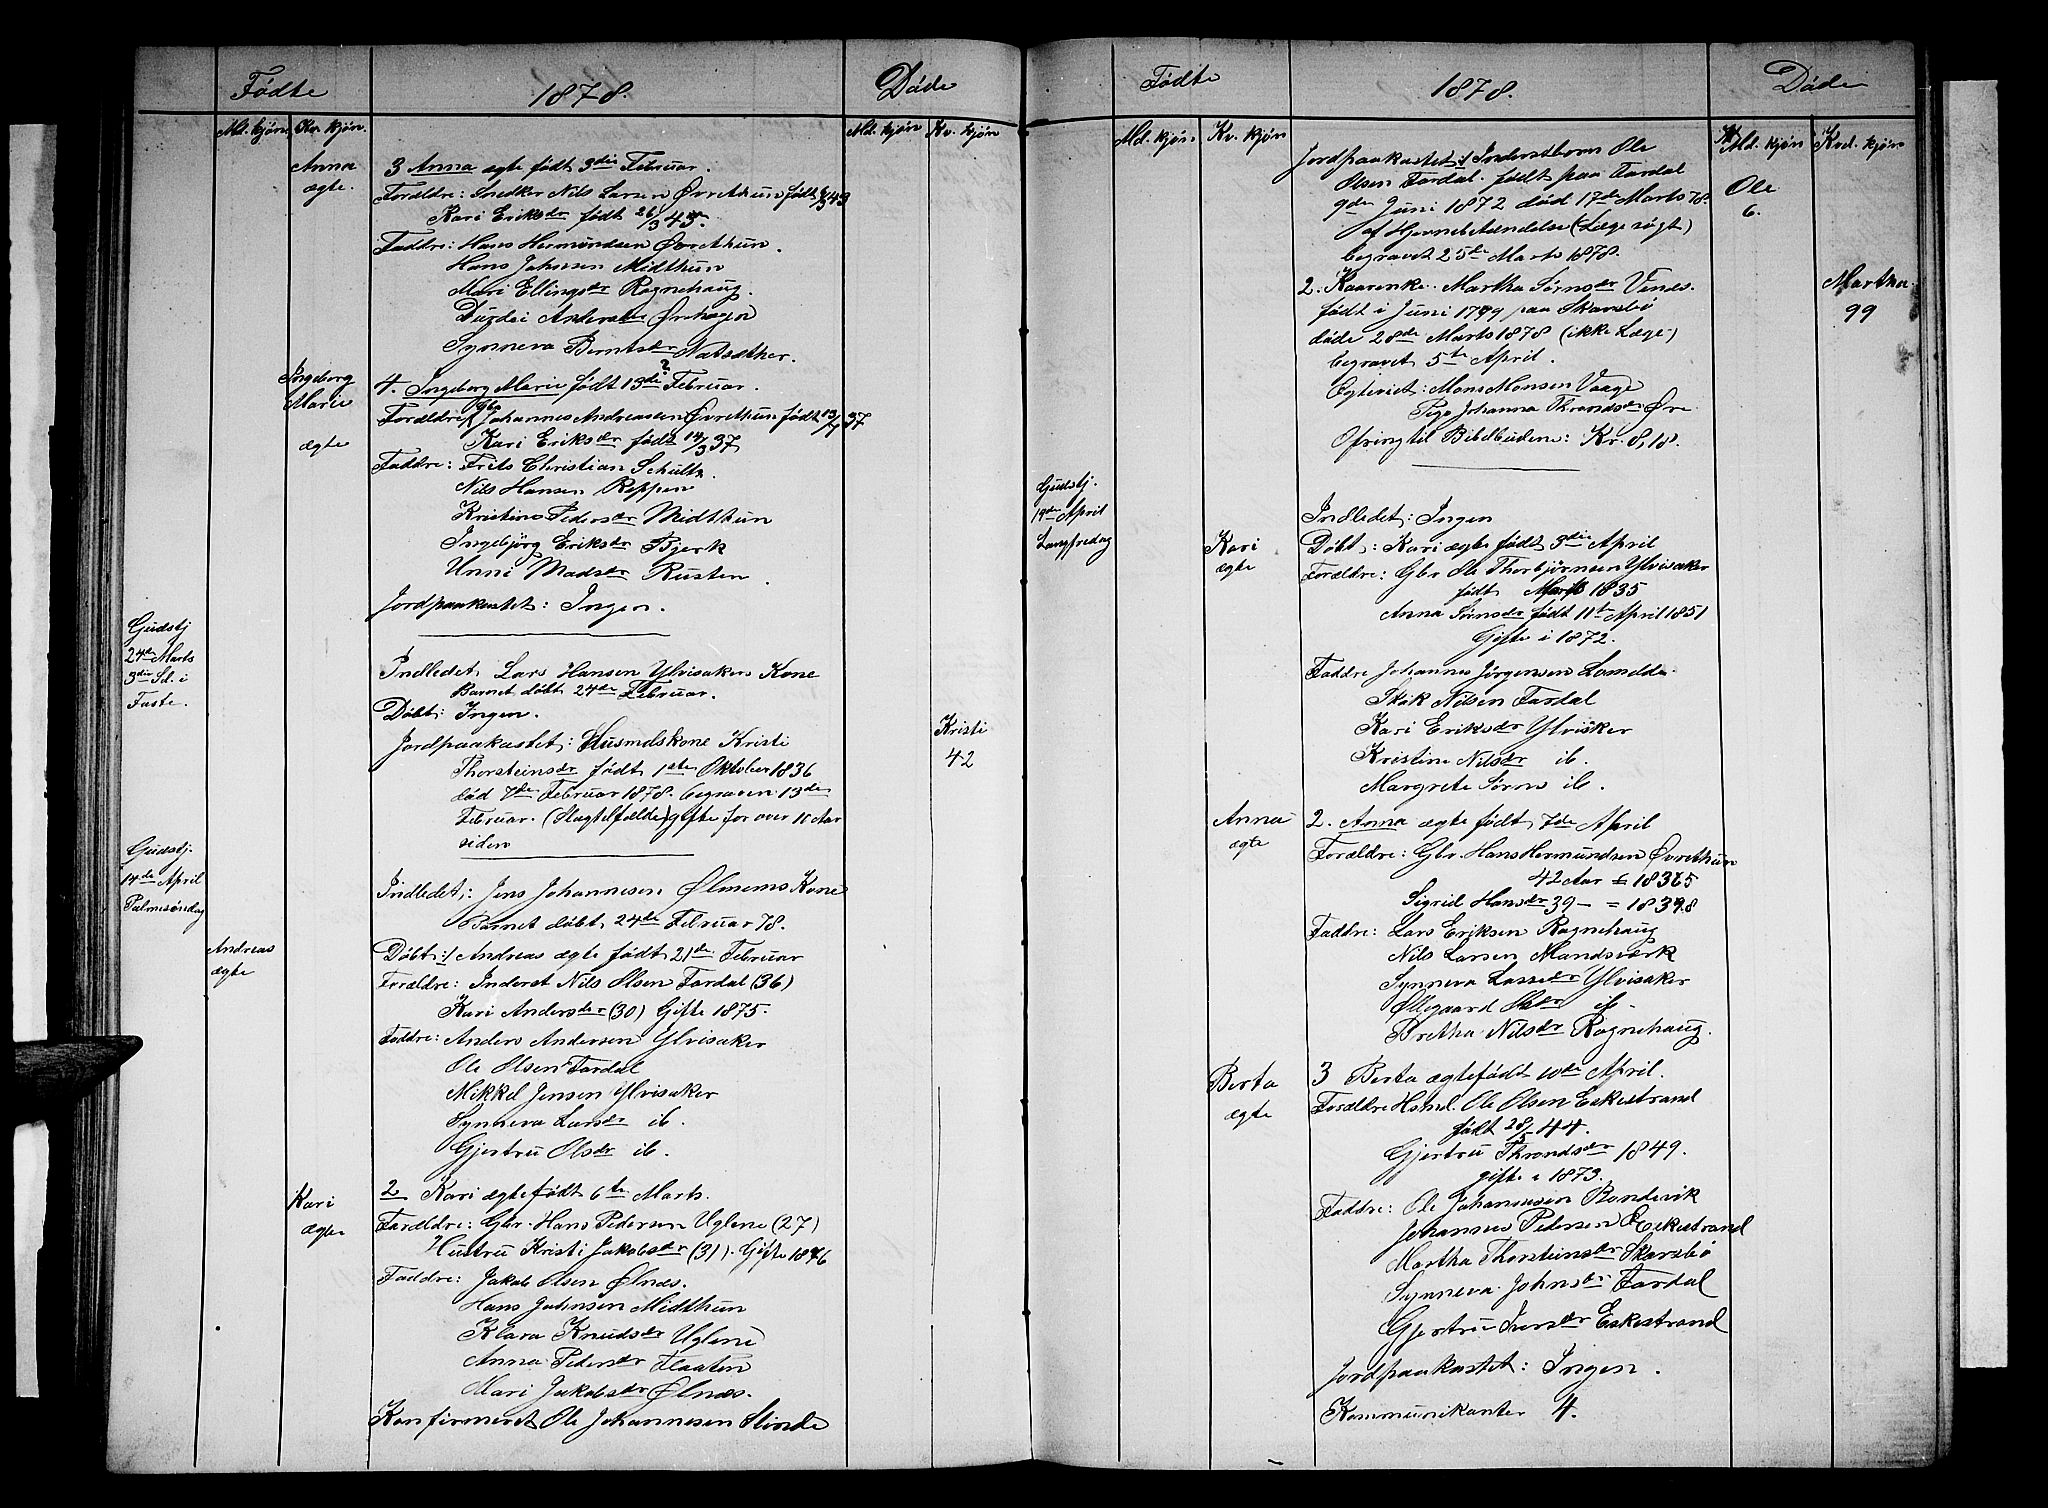 Fødte
1878.
Døde
Md. kjøn. Kv. kjøn.
Md. kjøn Kv. kjøn
Anna
ægte.
3 Anna ægte født 3die Februar.
Forældre: Snedker Nils Larsen Øvrethun født
Kari Eriksdr født 26/3 43.
Faddre: Hans Hermundsen Øvrethun.
Hans Johnsen Midthun
Mari Ellingsdr Rognehaug.
Durdei Andersdr Ørhagen
Synneva Berntsdr Natsæther.
Ingeborg
Marie
ægte
4. Ingeborg Marie født 13die? Februar.
Forældre: Gbr Johannes Andreassen Øvrethun født 13/1 37
Kari Eriksdr født 14/3 37
Faddre: Frits Christian Schultz.
Nils Hansen Reppen
Kristina Pedersdr Midthun
Ingebjørg Eriksdr Bjerk
Unni Madsdr Rusten.
Jordpaakastet: Ingen.
Gudstj
24de Marts
3die Sd. i
Faste.
Indledet, Lars Hansen Ylvisakers Kone
Barnet døbt 24de Februar.
Døbt: Ingen.
Jordpaakastet: Husmdskone Kristi
Thorsteinsdr født 1ste Oktober 1836
død 7de Februar 1878. begraven 13de
Februar. (Slagtilfælde) gifte for over 10 Aar
siden
Kristi
42
Gudstj.
14de April
Palmesøndag
Indledet: Jens Johannesen Ølmems Kone
Barnet døbt 24de Februar 78.
Andreas
ægte
Døbt: 1 Andreas ægte født 21de Februar
Forældre: Inderst Nils Olsen Fardal (36)
Kari Andersdr (30) Gifte 1875.
Faddre: Anders Andersen Ylvisaker
Ole Olsen Fardal
Mikkel Jensen Ylvisaker
Synneva Larsdr ib.
Gjertru Olsdr ib.
Kari
ægte
2 Kari ægte født 6te Marts.
Forældre: Gbr. Hans Pedersen Uglene (27)
Hustru Kristi Jakobsdr (31). Gifte 1876
Faddre: Jakob Olsen Ølnæs.
Hans Johnsen Midthun
Klara Knudsdr Uglene
Anna Pedersdr Flaaten
Mari Jakobsdr Ølnæs.
Konfirmeret Ole Johannesen Slinde
Fødte
1878.
Døde
Md. kjøn Kv. kjøn
Md. kjøn Kvd. kjøn
Jordpaakastet: 1 Inderstbarn Ole
Olsen Fardal. født paa Fardal
9de Juni 1872 død 17de Marts 78.
af Hjernebetændelse (Læge søgt)
begravet 25de Marts 1878.
Ole
6.
2. Kaarenke. Martha Sørnsdr Venes.
født i Juni 1779 paa Skarsbø
døde 28de Marts 1878 (ikke Læge)
begravet 5te April.
Martha.
99
Ægteviet: Mons Monsen Vaage
Pige Johanna Throndsdr Øvre
Ofring til Bibelbuden: Kr. 8,18.
Gudstj.
19de April
Langfredag
Indledet: Ingen
Kari
ægte
Døbt: Kari ægte født 3die April
Forældre: Gbr Ole Thorbjørnsen Ylvisaker
født Marts 1835
Anna Sørnsdr født 11te April 1851
Gifte i 1872.
Faddre Johannes Jørgensen Lomelde.
Nilsen Fardal
Kari Eriksdr Ylvisker
Kristine Nilsdr ib.
Margrete Sørns ib.
Anna
ægte
2. Anna ægte født 7de April
Forældre: Gbr. Hans Hermundsen Øvrethun
42 Aar = 1835
Sigrid Hansdr 39 – = 1838
Faddre: Lars Eriksen Rognehaug
Nils Larsen Mandsværk
Synneva Lassedr Ylvisaker
Ølegaard Olsdr ib.
Bretha Nilsdr Rognehaug.
Berta
ægte
3 Berta ægte født 10de April.
Forældre Hsmd. Ole Olsen Eskestrand
født 28/5 44.
Gjertru Throndsdr 1849.
gifte i 1873.
Faddre: Ole Johannesen Bondevik
Johannes Pedersen Eskestrand
Martha Thorsteinsdr Skarsbø
Synneva Johnsdr Fardal
Gjertru Iversdr Eskestrand
Jordpaakastet: Ingen.
Kommunikanter 4.